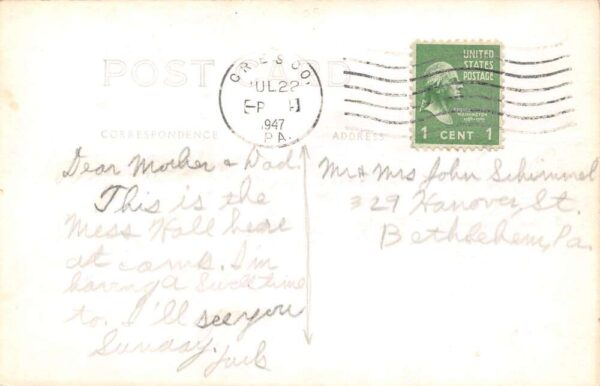 POST CARD
CRESCO,
JUL 22
PM
1947
PA.
UNITED
STATES
POSTAGE
WASHINGTON
1 CENT 1
CORRESPONDENCE
ADDRESS
Dear Mother & Dad,
This is the
Mess Hall here
at camp. I'm
having a swell time
to. I'll see you
Sunday.
Mr & Mrs John Schimmel
329 Hanover St.
Bethlehem, Pa.